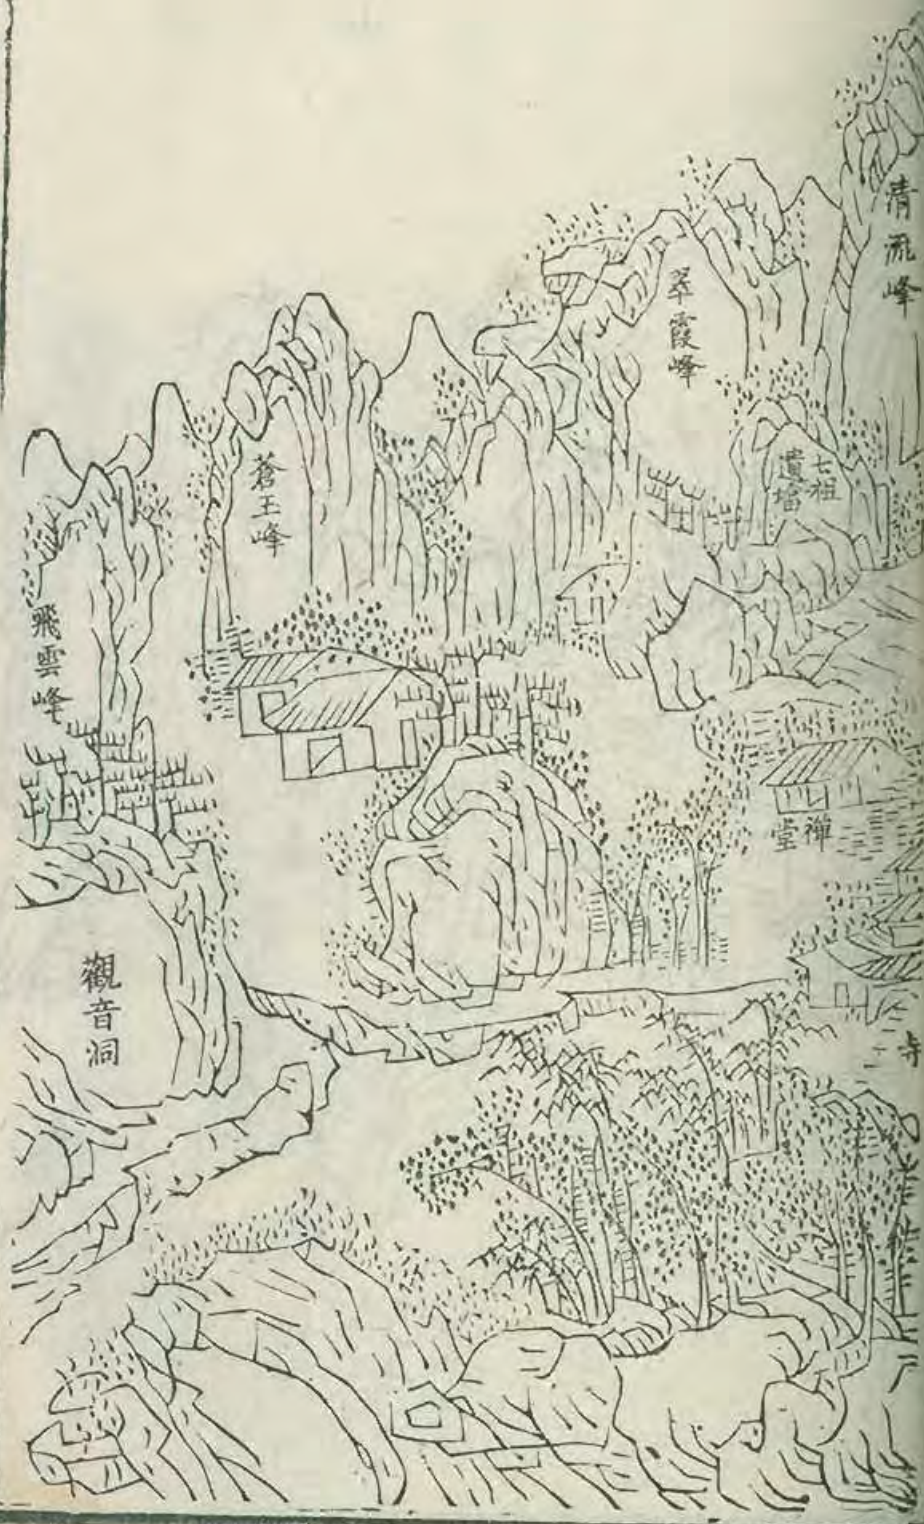 清流峰
翠霞峰
七祖
遺壇
蒼玉峰
飛雲峰
禪
堂
寺
觀音洞